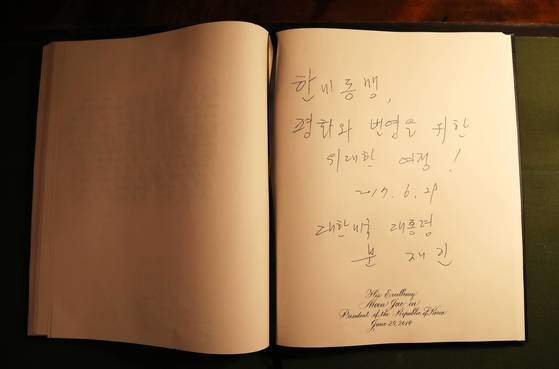 한미동맹,
평화와 번영을 위한
위대한 여정!
2017. 6. 29
대한미국 대통령
문 재인
His Excellency
Moon Jae-in
President of the Republic of Korea
June 29, 2017